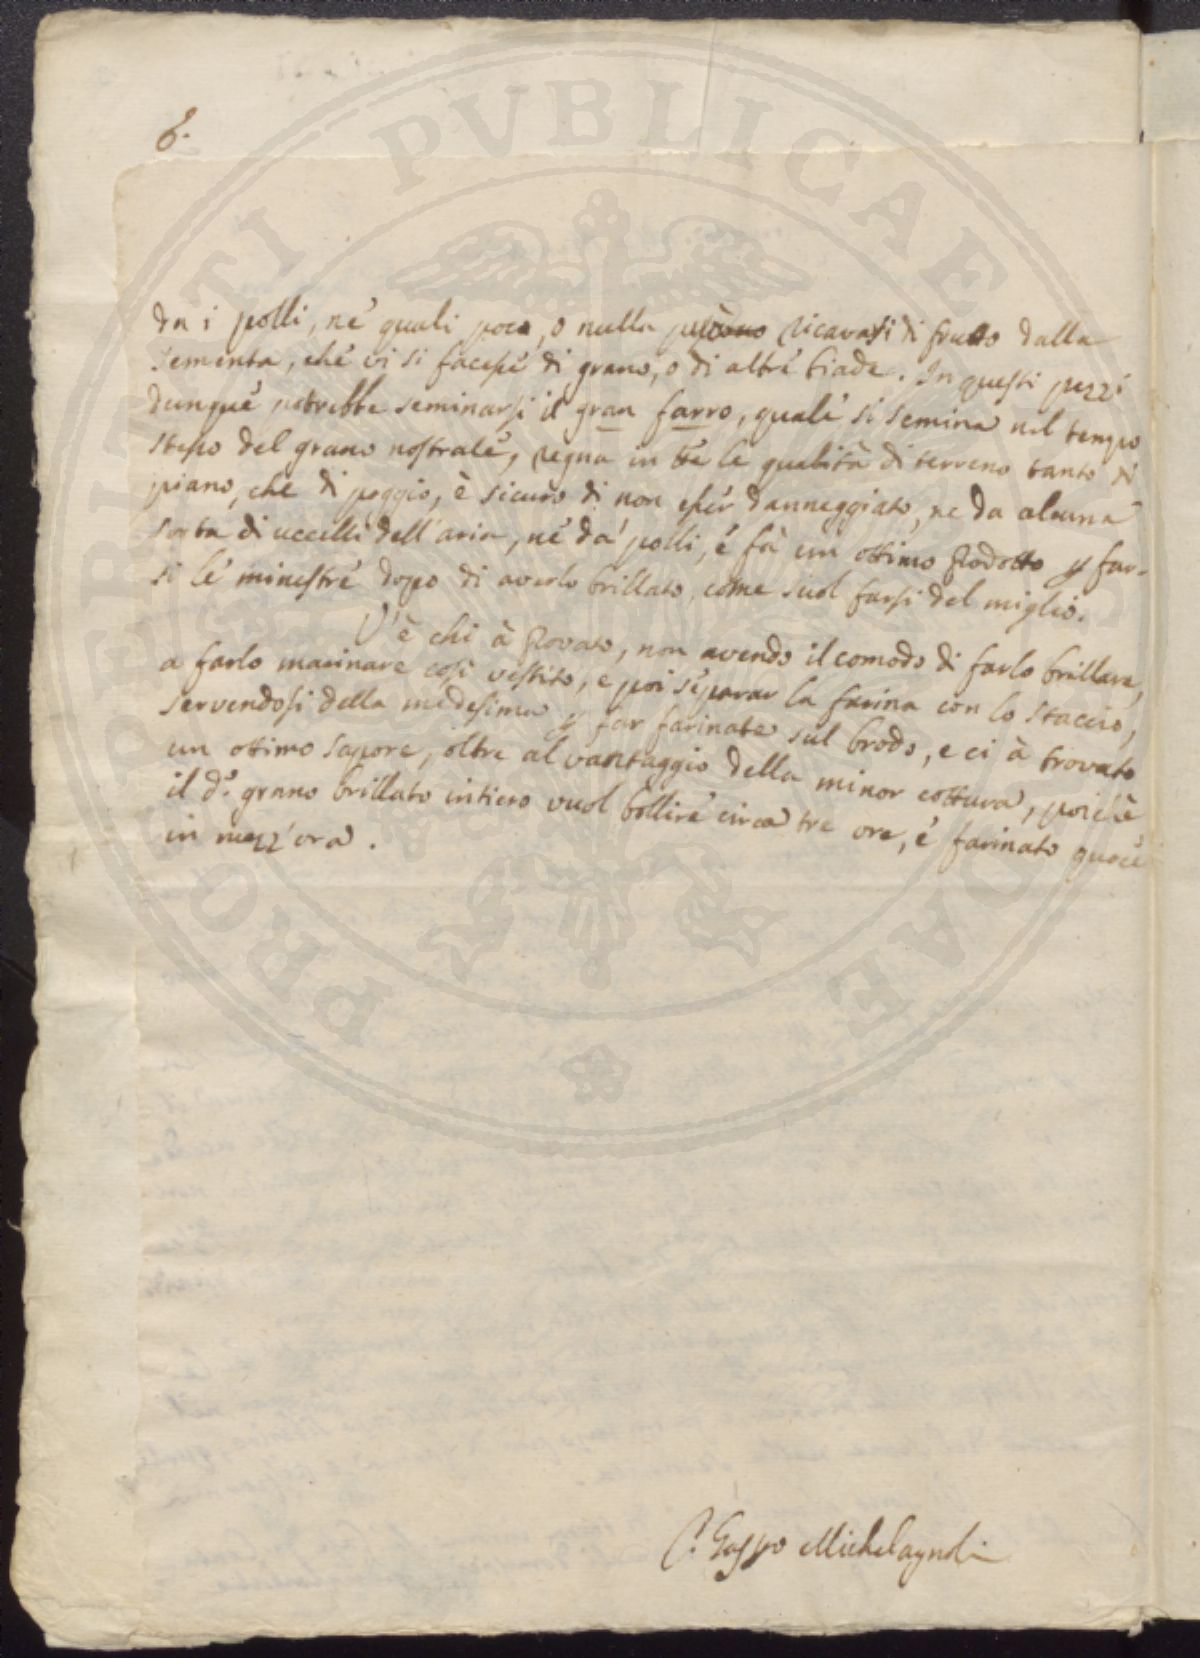 6.
da i polli, ne' quali poco, o nulla ricavasi di frutto dalla
sementa, che vi si facesse di grano, o di altre biade. In questi pezzi
dunque potrebbe seminarsi il gran farro, quale si semina nel tempo
stesso del grano nostrale, regna in tte le qualità di terreno tanto di
piano, che di poggio, è sicuro di non esser danneggiato, ne da alcuna
sorta di uccelli dell'aria, ne da' polli, e fà un ottimo prodotto p far-
si le minestre dopo di averlo brillato, come suol farsi del miglio.
V'è chi à provato, non avendo il comodo di farlo brillare,
a farlo macinare così vestito, e poi separar la farina con lo staccio,
servendosi della medesima p far farinate sul brodo, e ci à trovato
un ottimo sapore, oltre al vantaggio della minor cottura, poichè
il d.º grano brillato intiero vuol bollire circa tre ore, e farinato quoce
in mezz'ora.
Michelagnoli
PROSPERITATI PVBLICAE